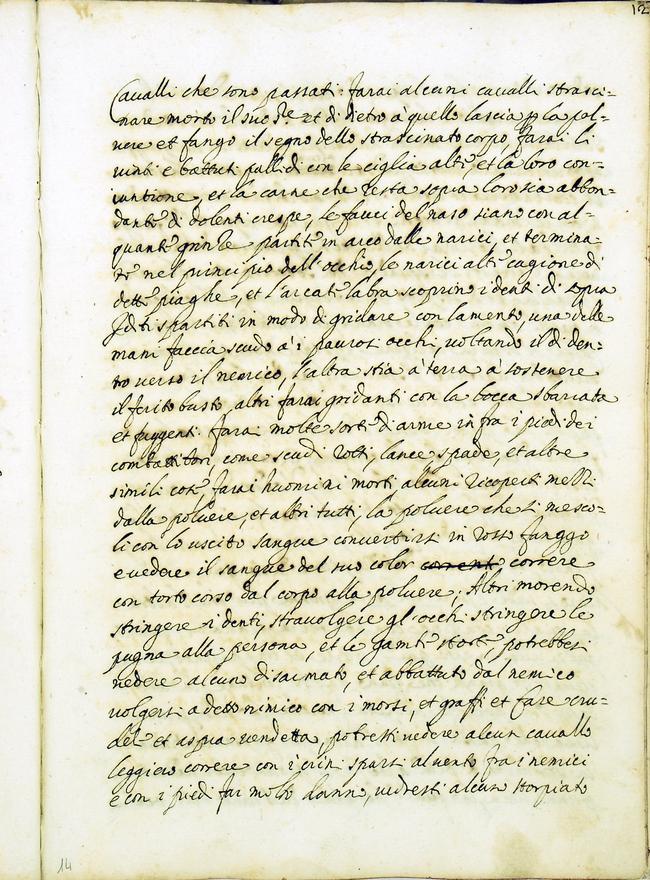 12
Cavalli che sono passati. farai alcuni cavalli strasci=
nare morto il suo s.re et di dietro à quello lascia p la pol=
vere et fango il segno dello strascinato corpo, farai li
vinti e battuti pallidi con le ciglia alte, et la loro con=
iuntione, et la carne che resta sopra loro sia abbon=
dante di dolenti crespe, le fauci del naso siano con al=
quante grinze partite in arco dalle narici, et termina=
te nel principio dell'occhio, le narici alte cagione di
dette piaghe, et l'arcate labra scoprino i denti di sopra
I diti spartiti in modo di gridare con lamento, una delle
mani faccia scudo à i paurosi occhi, voltando il di den=
tro verso il nemico, l'altra stia à terra à sostenere
il ferito busto, altri farai gridanti con la bocca sbarrata
et fuggenti. farai molte sorte di arme infra i piedi dei
combattitori, come scudi rotti, lance spade, et altre
simili cose, farai huomini morti alcuni ricoperti mezzi
dalla polvere, et altri tutti, la polvere che si mesco=
li con lo uscito sangue convertirsi in rosso fanggo
e vedere il sangue del suo color corrente correre
con torto corso dal corpo alla polvere. Altri morendo
stringere i denti, stravolgere gl'occhi stringere le
pugna alla persona, et le gambe storte, potrebbesi
vedere alcuno disarmato, et abbattuto dal nemico
volgersi a detto nimico con i morsi, et graffi et fare cru=
dele et aspra vendetta, potresti vedere alcun cavallo
leggiero correre con i crini sparsi al vento fra i nemici
e con i piedi far molto danno, vedresti alcuno storpiato
14